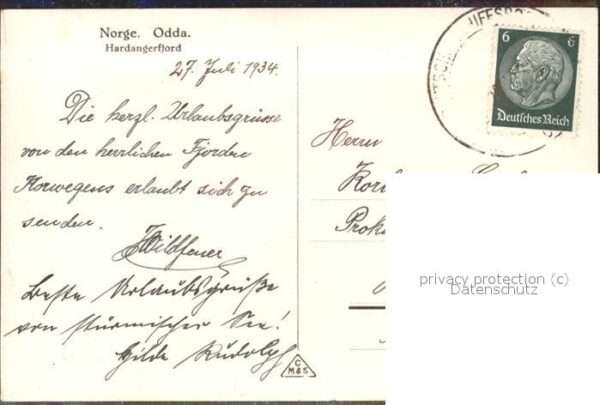 Norge. Odda.
Hardangerfjord
27. Juli 1934.
Die herzl. Urlaubsgrüsse
von den herrlichen Fjorden
Norwegens erlaubt sich zu
senden.
Beste Urlaubsgrüße
von stürmischer See!
Hilde Rudolph
C
M&S
6 6
Deutsches Reich
Herrn
Prok
privacy protection (c)
Datenschutz